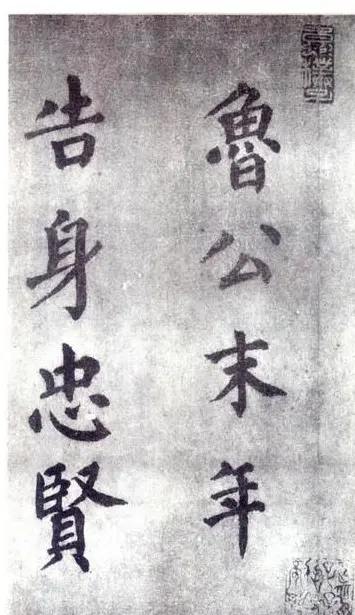 魯公末年
告身忠賢